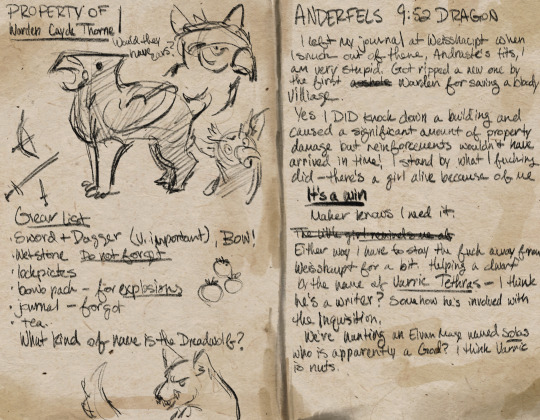 PROPERTY OF
Warden Cayde Thorne
Would they
have ears?
Gear List
· Sword + Dagger (V. important), BOW!
· Wetstone Do not forget
· lockpicks
· bomb pack - for explosions
· journal - forgot
· tea.
What kind of name is the Dreadwolf?
ANDERFELS 9:52 DRAGON
I left my journal at Weisshaupt when
I snuck out of there, Andraste's tits, I
am very stupid. Got ripped a new one by
the first asshole Warden for saving a bloody
Village.
Yes I DID knock down a building and
caused a significant amount of property
damage but reinforcements wouldn't have
arrived in time! I stand by what I fucking
did - there's a girl alive because of me
It's a win
Maker knows I need it.
The little girl reminds me of
Either way I have to stay the fuck away from
Weisshaupt for a bit. Helping a dwarf
by the name of Varric Tethras - I think
he's a writer? Somehow he's involved with
the Inquisition.
We're hunting an Elven Mage named Solas
who is apparently a God? I think Varric
is nuts.